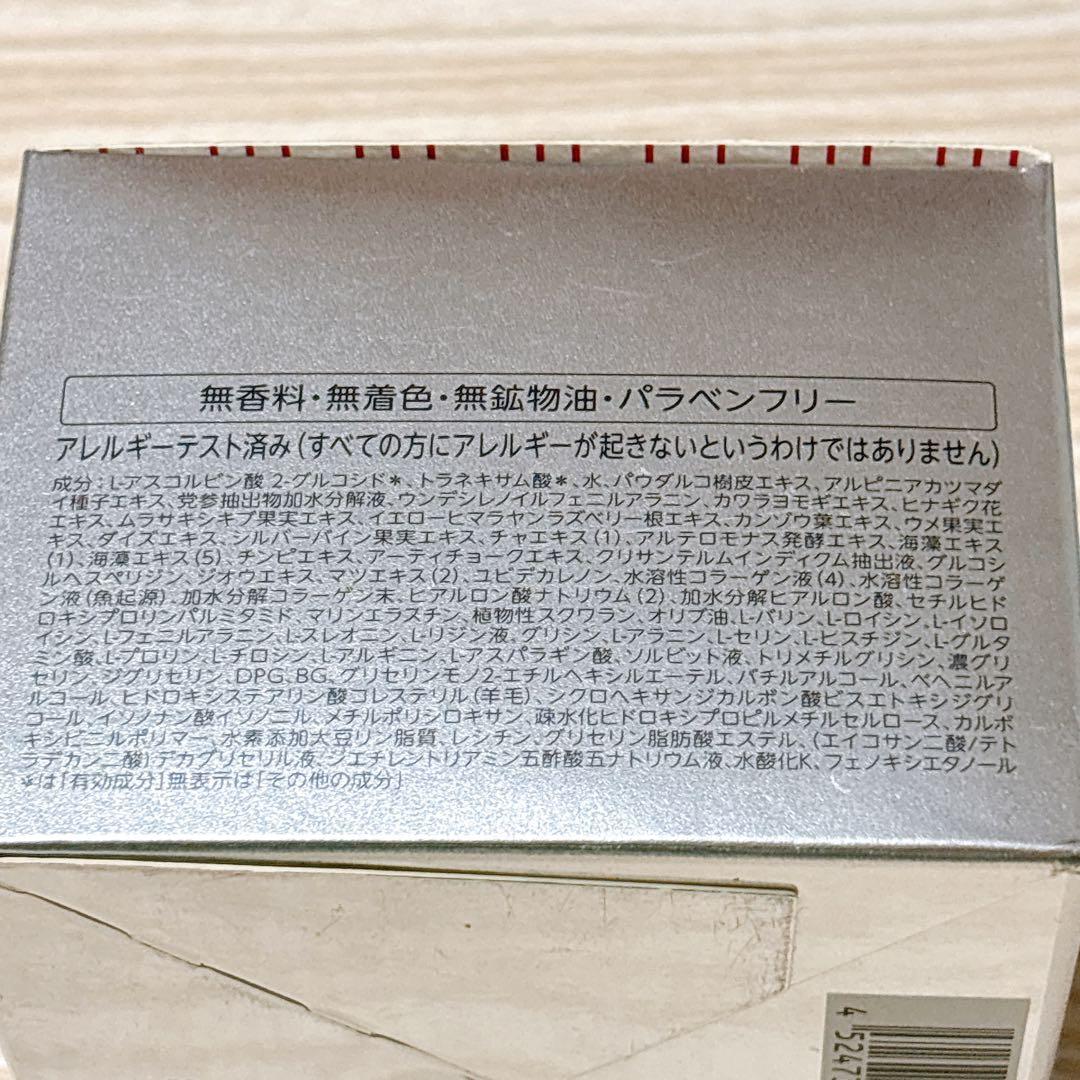 無香料・無着色・無鉱物油・パラベンフリー
アレルギーテスト済み(すべての方にアレルギーが起きないというわけではありません)
成分：L-アスコルビン酸 2-グルコシド＊、トラネキサム酸＊、水、パウダルコ樹皮エキス、アルピニアカツマダ
イ種子エキス、党参抽出物加水分解液、ウンデシレノイルフェニルアラニン、カワラヨモギエキス、ヒナギク花
エキス、ムラサキシキブ果実エキス、イエローヒマラヤンラズベリー根エキス、カンゾウ葉エキス、ウメ果実エ
キス、ダイズエキス、シルバーバイン果実エキス、チャエキス(1)、アルテロモナス発酵エキス、海藻エキス
(1)、海藻エキス(5)、チンピエキス、アーティチョークエキス、クリサンテルムインディクム抽出液、グルコシ
ルヘスペリジン、ジオウエキス、マツエキス(2)、ユビデカレノン、水溶性コラーゲン液(4)、水溶性コラーゲ
ン液(魚起源)、加水分解コラーゲン末、ヒアルロン酸ナトリウム(2)、加水分解ヒアルロン酸、セチルヒド
ロキシプロリンパルミタミド、マリンエラスチン、植物性スクワラン、オリブ油、L-バリン、L-ロイシン、L-イソロ
イシン、L-フェニルアラニン、L-スレオニン、L-リジン液、グリシン、L-アラニン、L-セリン、L-ヒスチジン、L-グルタ
ミン酸、L-プロリン、L-チロシン、L-アルギニン、L-アスパラギン酸、ソルビット液、トリメチルグリシン、濃グリ
セリン、ジグリセリン、DPG、BG、グリセリンモノ2-エチルヘキシルエーテル、バチルアルコール、ベヘニルア
ルコール、ヒドロキシステアリン酸コレステリル(羊毛)、シクロヘキサンジカルボン酸ビスエトキシジグリ
コール、イソノナン酸イソノニル、メチルポリシロキサン、疎水化ヒドロキシプロピルメチルセルロース、カルボ
キシビニルポリマー、水素添加大豆リン脂質、レシチン、グリセリン脂肪酸エステル、(エイコサン二酸/テト
ラデカン二酸)デカグリセリル液、ジエチレントリアミン五酢酸五ナトリウム液、水酸化K、フェノキシエタノール
＊は「有効成分」無表示は「その他の成分」
4 5247